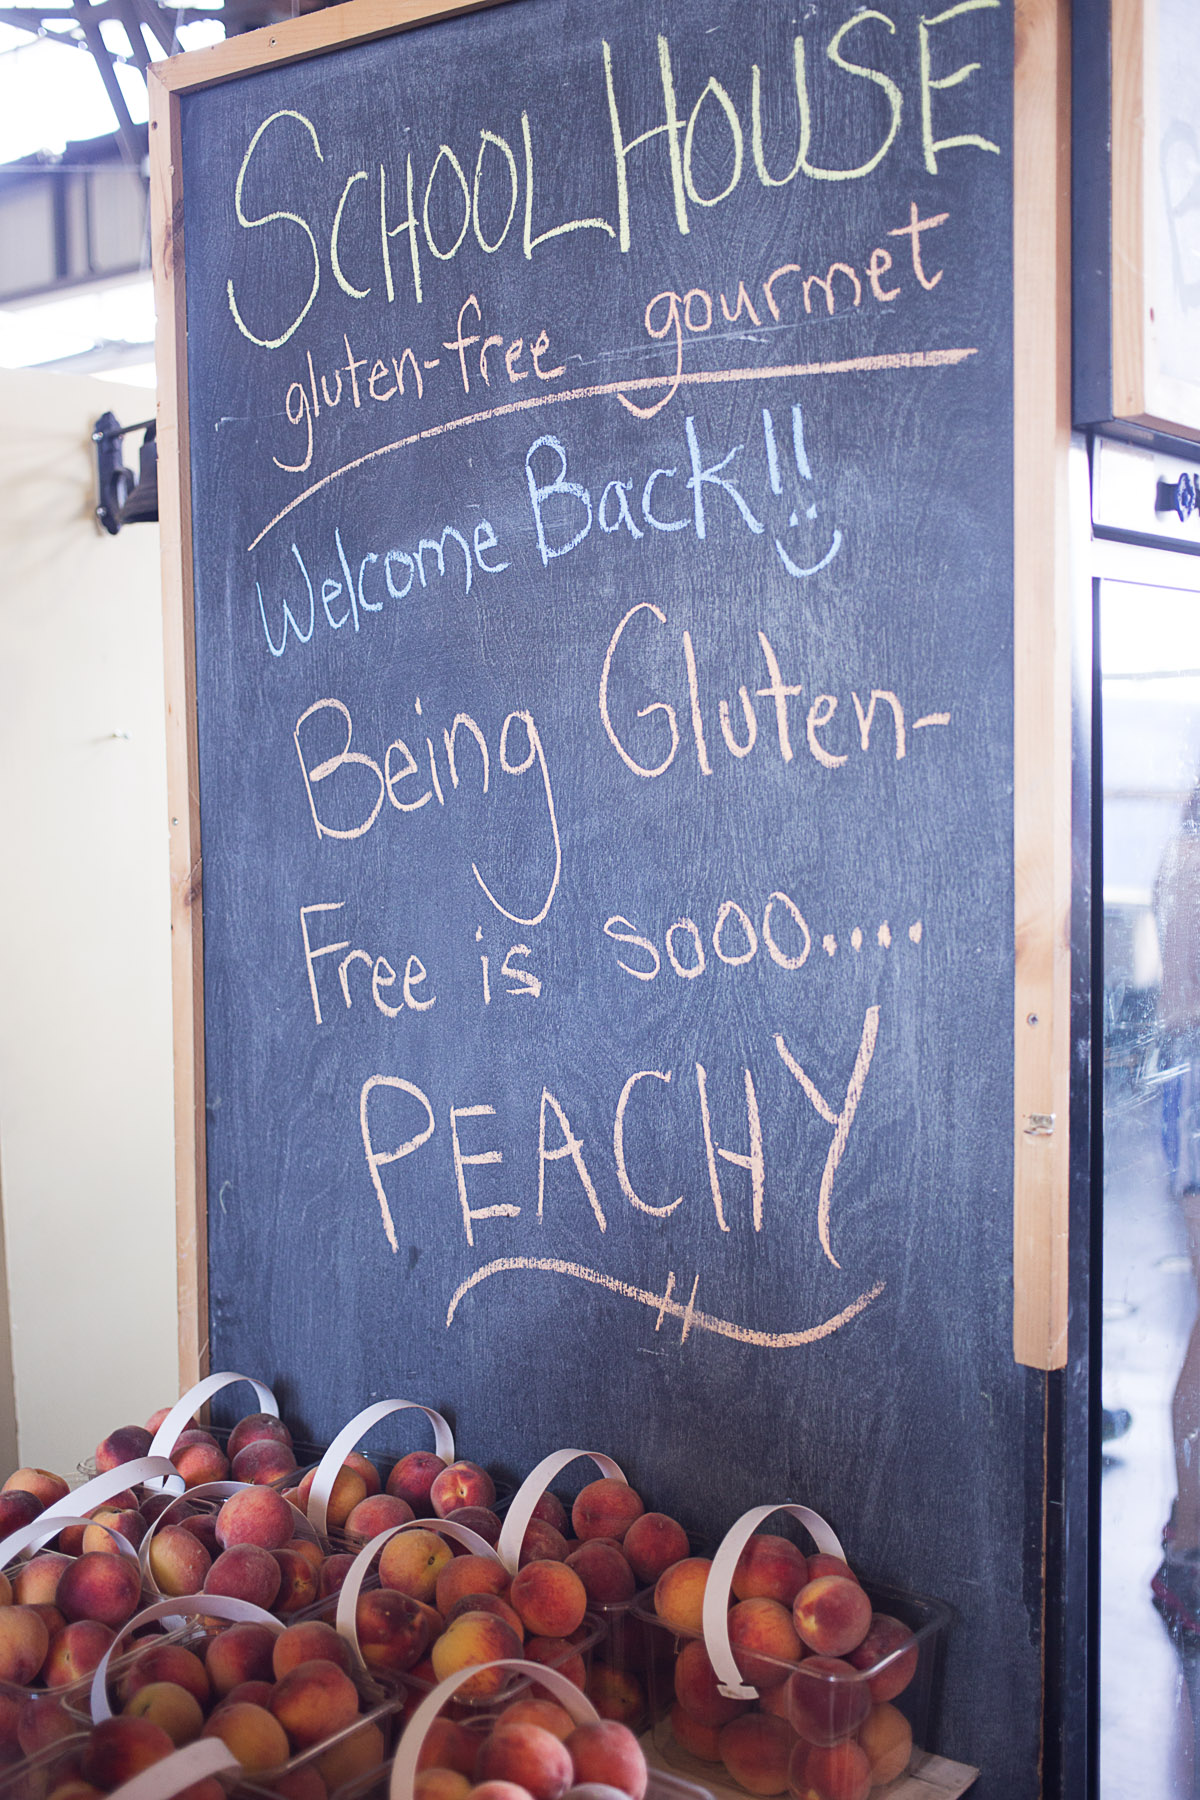 SCHOOLHOUSE
gluten-free gourmet
Welcome Back!!
Being Gluten-
Free is sooo....
PEACHY